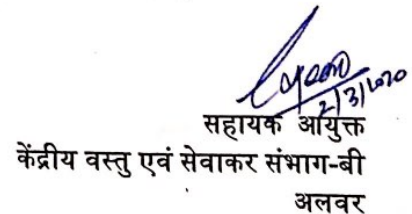 2/3/2020
सहायक आयुक्त
केंद्रीय वस्तु एवं सेवाकर संभाग-बी
अलवर